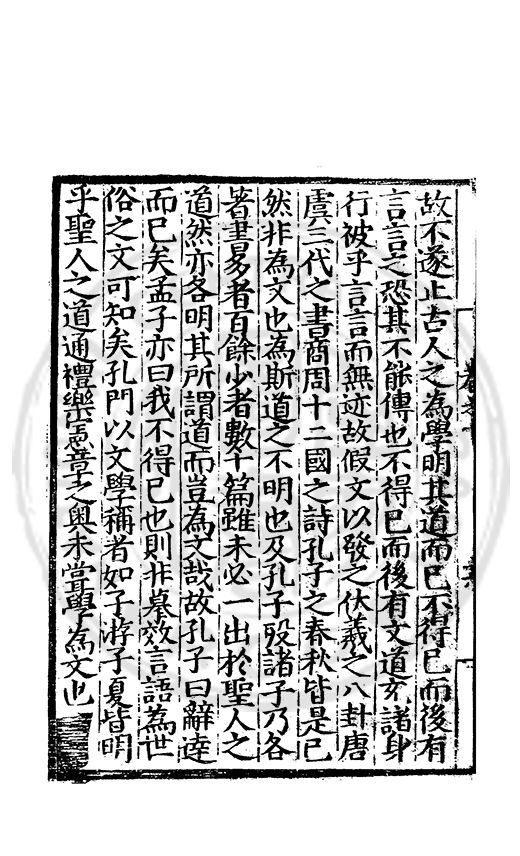 故不遂止古人之為學明其道而已不得已而後有
言言之恐其不能傳也不得已而後有文道充諸身
行被乎言言而無迹故假文以發之伏羲之八卦唐
虞三代之書商周十二國之詩孔子之春秋皆是已
然非為文也為斯道之不明也及孔子歿諸子乃各
著書多者百餘少者數十篇雖未必一出於聖人之
道然亦各明其所謂道而豈為文哉故孔子曰辭達
而已矣孟子亦曰我不得已也則非摹效言語為世
俗之文可知矣孔門以文學稱者如子游子夏皆明
乎聖人之道通禮樂憲章之奧未嘗學為文也